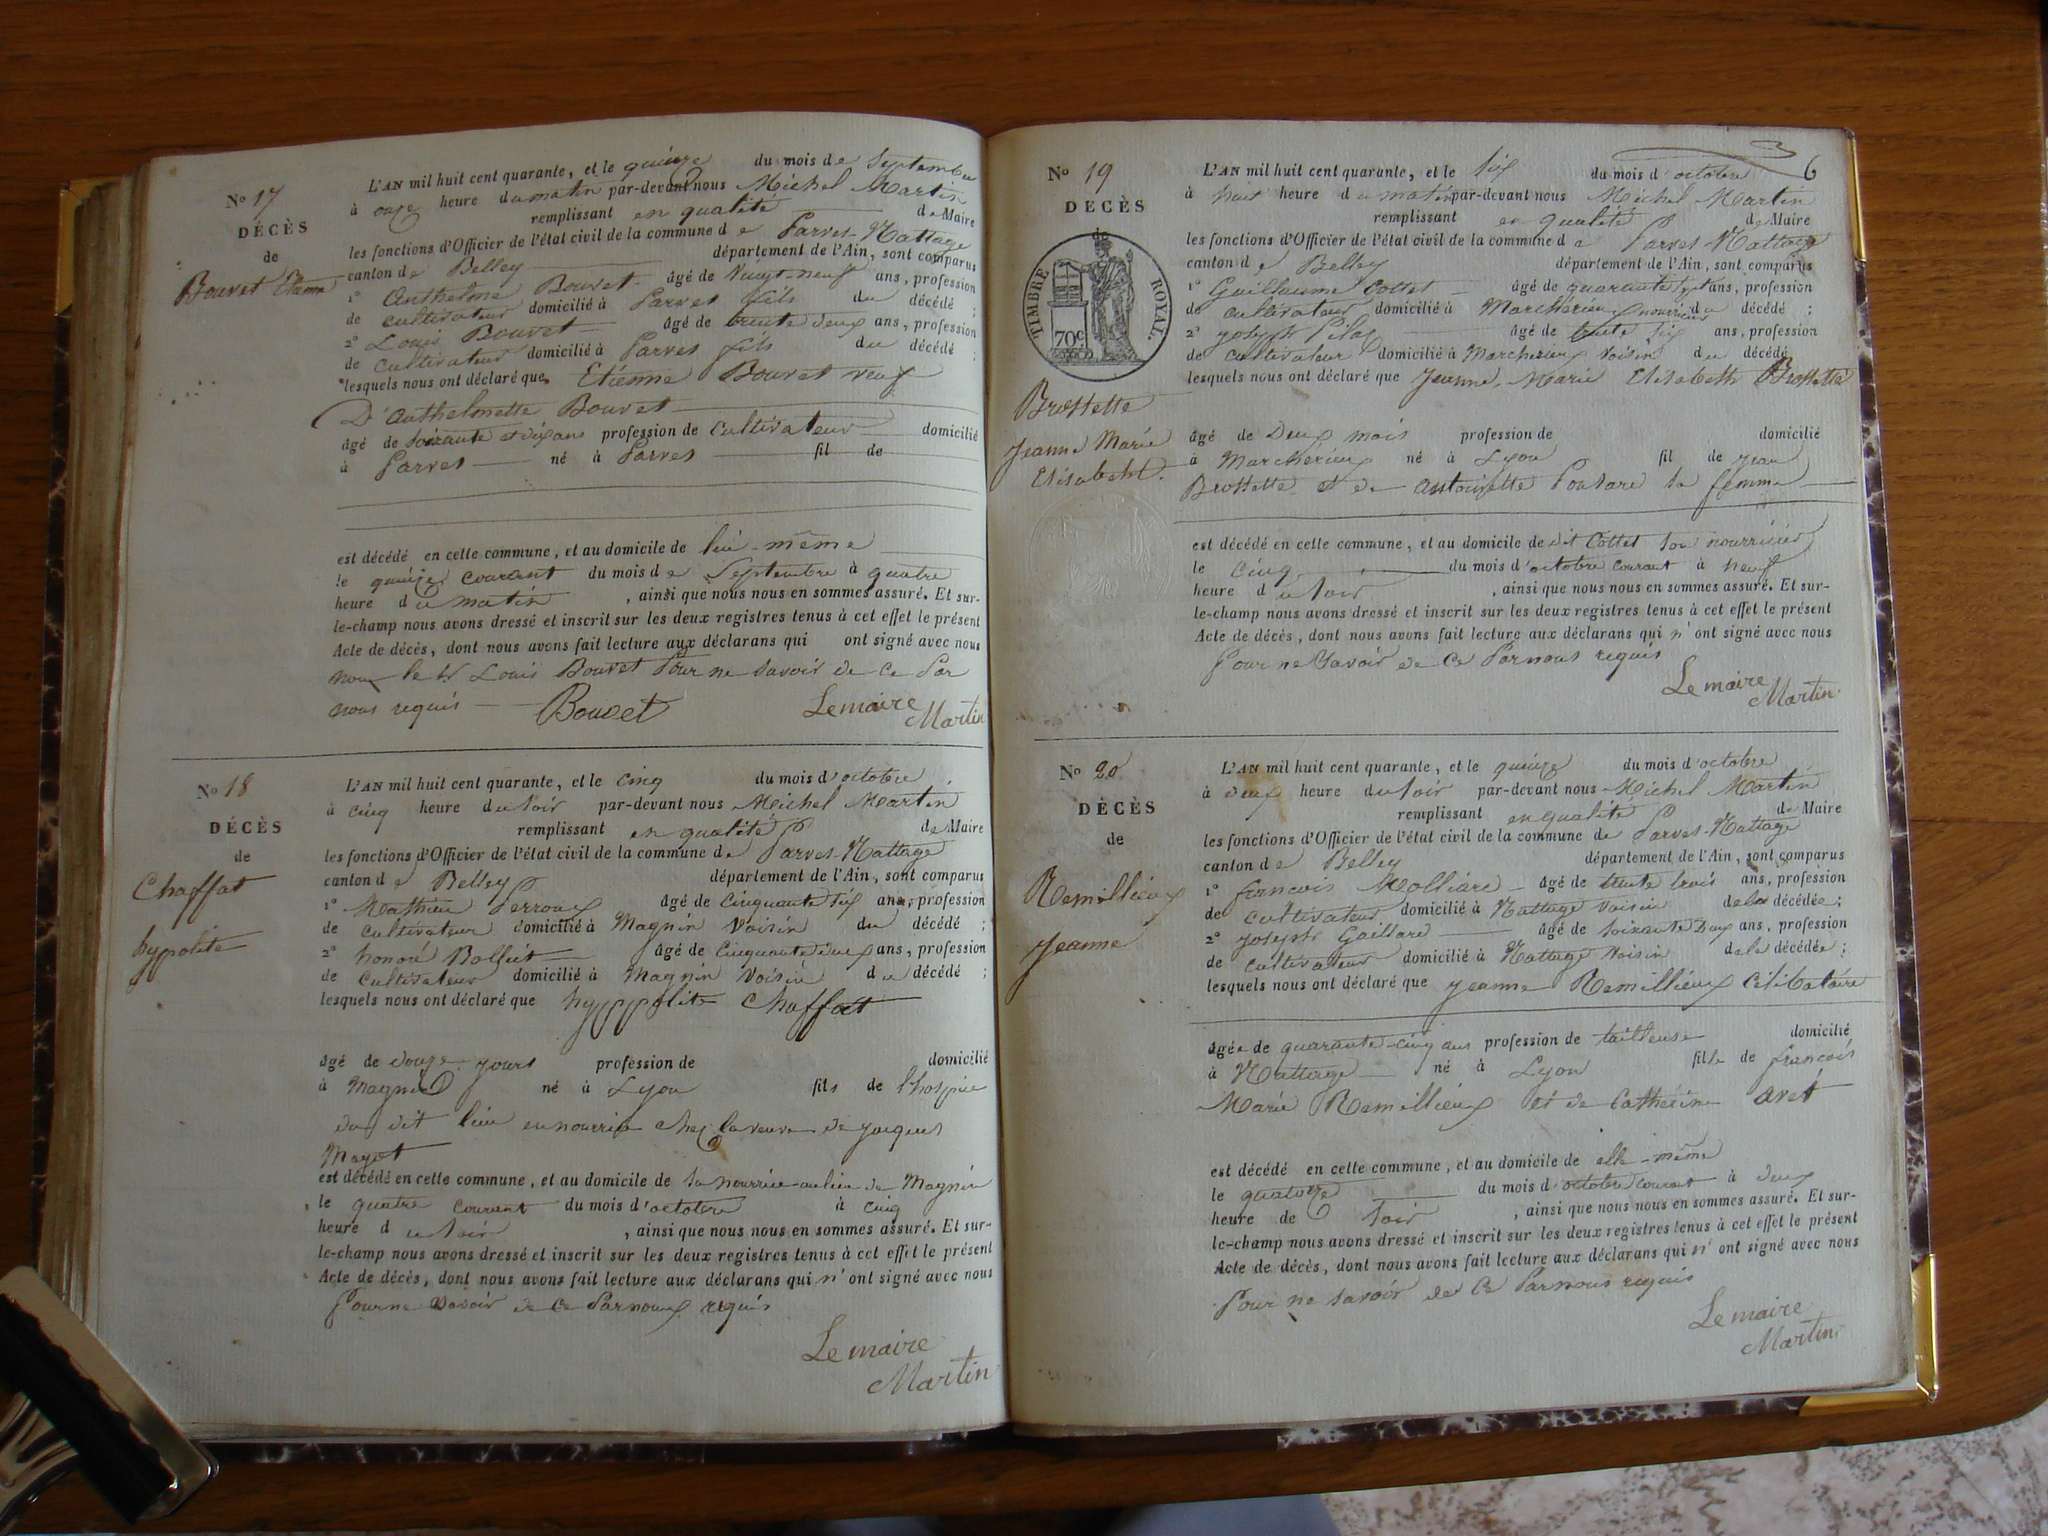 No 17
DÉCÈS
de
Bouvet Etienne
L'AN mil huit cent quarante, et le quinze du mois de Septembre
à onze heure du matin par-devant nous Michel Martin
remplissant en qualité de Maire
les fonctions d'Officier de l'état civil de la commune de Parves-Nattage
canton de Belley département de l'Ain, sont comparus
1o Anthelme Bouvet âgé de vingt-neuf ans, profession
de cultivateur domicilié à Parves fils du décédé ;
2o Louis Bouvet âgé de trente deux ans, profession
de cultivateur domicilié à Parves fils du décédé ;
lesquels nous ont déclaré que Etienne Bouvet veuf
D'Anthelmette Bouvet
âgé de soixante et dix ans profession de cultivateur domicilié
à Parves né à Parves fil de
est décédé en cette commune, et au domicile de lui-même
le quinze courant du mois de Septembre à quatre
heure du matin, ainsi que nous nous en sommes assuré. Et sur-
le-champ nous avons dressé et inscrit sur les deux registres tenus à cet effet le présent
Acte de décès, dont nous avons fait lecture aux déclarans qui ont signé avec nous
non le Sr Louis Bouvet Pour ne savoir de ce Par
nous requis Bouvet Le maire
Martin
No 18
DÉCÈS
de
Chaffat
hypolite
L'AN mil huit cent quarante, et le cinq du mois d'octobre
à cinq heure du soir par-devant nous Michel Martin
remplissant en qualité de Maire
les fonctions d'Officier de l'état civil de la commune de Parves-Nattage
canton de Belley département de l'Ain, sont comparus
1o Mathieu Perroux âgé de cinquante six ans, profession
de cultivateur domicilié à Magnin Voisin du décédé ;
2o honoré Bolliet âgé de cinquante deux ans, profession
de cultivateur domicilié à Magnin Voisin du décédé ;
lesquels nous ont déclaré que hyppolite Chaffat
âgé de douze jours profession de domicilié
à Magnin né à Lyon fils de l'hospice
du dit lieu en nourrice chez la veuve de jacques
Mayot
est décédé en cette commune, et au domicile de sa nourrice au lieu de Magnin
le quatre courant du mois d'octobre à cinq
heure du soir, ainsi que nous nous en sommes assuré. Et sur-
le-champ nous avons dressé et inscrit sur les deux registres tenus à cet effet le présent
Acte de décès, dont nous avons fait lecture aux déclarans qui n'ont signé avec nous
Pour ne savoir de ce Par nous requis
Le maire
Martin
6
No 19
DÉCÈS
de
TIMBRE ROYAL.
70c
Brossette
Jeanne Marie
Elisabeht.
L'AN mil huit cent quarante, et le six du mois d'octobre
à huit heure du matin par-devant nous Michel Martin
remplissant en qualité de Maire
les fonctions d'Officier de l'état civil de la commune de Parves-Nattage
canton de Belley département de l'Ain, sont comparus
1o Guillaume Cottet âgé de quarante sept ans, profession
de cultivateur domicilié à Marcherieux nourricier du décédé ;
2o joseph Pilaz âgé de trente six ans, profession
de cultivateur domicilié à Marcherieux voisin du décédé
lesquels nous ont déclaré que Jeanne Marie Elisabeth Brossette
âgé de Deux mois profession de domicilié
à Marcherieux né à Lyon fil de jean
Brossette et de Antoinette Ponsard sa femme
est décédé en cette commune, et au domicile de dit Cottet son nourricier
le cinq du mois d'octobre courant à neuf
heure du soir, ainsi que nous nous en sommes assuré. Et sur-
le-champ nous avons dressé et inscrit sur les deux registres tenus à cet effet le présent
Acte de décès, dont nous avons fait lecture aux déclarans qui n'ont signé avec nous
Pour ne Savoir de ce Par nous requis
Le maire
Martin
No 20
DÉCÈS
de
Remillieux
Jeanne
L'AN mil huit cent quarante, et le quinze du mois d'octobre
à deux heure du soir par-devant nous Michel Martin
remplissant en qualité de Maire
les fonctions d'Officier de l'état civil de la commune de Parves-Nattage
canton de Belley département de l'Ain, sont comparus
1o francois Molliare âgé de trente trois ans, profession
de cultivateur domicilié à Nattage voisin de la décédée ;
2o joseph Gaillard âgé de soixante Deux ans, profession
de cultivateur domicilié à Nattage voisin de la décédée ;
lesquels nous ont déclaré que jeanne Remillieux célibataire
âgée de quarante-cinq ans profession de tailleuse domicilié
à Nattage né à Lyon fille de francois
Marie Remillieux et de Catherine avet
est décédé en cette commune, et au domicile de elle-même
le quatorze du mois d'octobre courant à deux
heure de soir, ainsi que nous nous en sommes assuré. Et sur-
le-champ nous avons dressé et inscrit sur les deux registres tenus à cet effet le présent
Acte de décès, dont nous avons fait lecture aux déclarans qui n'ont signé avec nous
Pour ne savoir de ce Par nous requis
Le maire
Martin